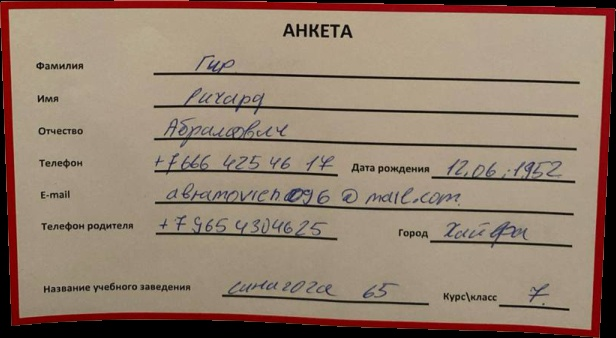 АНКЕТА
Фамилия Гир
Имя Ричард
Отчество Абрамович
Телефон +7 666 425 46 17 Дата рождения 12.06.1952
E-mail abramovich096@mail.com
Телефон родителя +7 965 4304625 Город Хайфа
Название учебного заведения синагога 65 Курс\класс 7